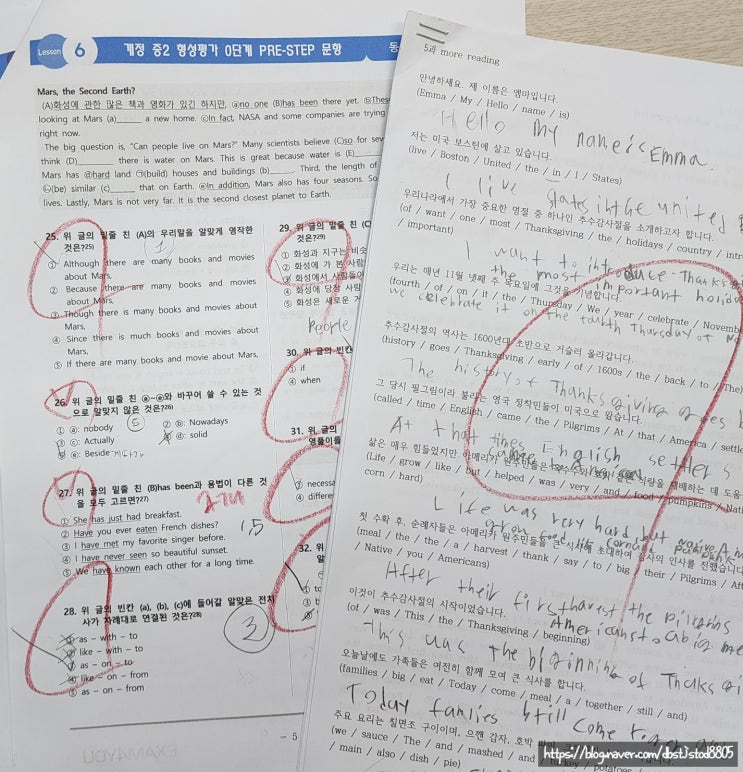 Lesson 6 계정 중2 형성평가 0단계 PRE-STEP 문항 동
Mars, the Second Earth?
(A)화성에 관한 많은 책과 영화가 있긴 하지만, ⓐno one (B)has been there yet. ⓑThese
looking at Mars (a)______ a new home. ⓒIn fact, NASA and some companies are trying
right now.
The big question is, "Can people live on Mars?" Many scientists believe (C)so for sev
think (D)______ there is water on Mars. This is great because water is (E)
Mars has ⓓhard land ㉠(build) houses and buildings (b)______. Third, the length of
㉡(be) similar (c)______ that on Earth. ⓔIn addition, Mars also has four seasons. So
lives. Lastly, Mars is not very far. It is the second closest planet to Earth.
25. 위 글의 밑줄 친 (A)의 우리말을 알맞게 영작한
것은?25)
① Although there are many books and movies
about Mars,
② Because there are many books and movies
about Mars,
③ Though there is many books and movies about
Mars,
④ Since there is much books and movies about
Mars,
⑤ If there are many books and movie about Mars,
26. 위 글의 밑줄 친 ⓐ~ⓔ와 바꾸어 쓸 수 있는 것
으로 알맞지 않은 것은?26)
① ⓐ: nobody ② ⓑ: Nowadays
③ ⓒ: Actually ④ ⓓ: solid
⑤ ⓔ: Beside
⑤
27. 위 글의 밑줄 친 (B)has been과 용법이 다른 것
을 모두 고르면?27)
① She has just had breakfast.
② Have you ever eaten French dishes?
③ I have met my favorite singer before.
④ I have never seen so beautiful sunset.
⑤ We have known each other for a long time.
1,5
28. 위 글의 빈칸 (a), (b), (c)에 들어갈 알맞은 전치
사가 차례대로 연결된 것은?28)
③
① as – with – to
② like – with – to
③ as – on – to
④ like – on – from
⑤ as – on – from
29. 위 글의 밑줄 친 (C
것은?29)
① 화성과 지구는 비슷
② 화성에 가 본 사람
③ 화성에서 사람들이
④ 화성에 당장 사람
⑤ 화성은 새로운 거
People
30. 위 글의 빈칸
① if
④ when
31. 위 글의
영풀이를
② necessa
④ differe
32. 위
- 5
EXAM4YOU
5과 more reading
안녕하세요. 제 이름은 엠마입니다.
(Emma / My / Hello / name / is)
Hello My name is Emma.
저는 미국 보스턴에 살고 있습니다.
(live / Boston / United / the / in / I / States)
I live states in the united
우리나라에서 가장 중요한 명절 중 하나인 추수감사절을 소개하고자 합니다.
(of / want / one / most / Thanksgiving / the / holidays / country / intr
/ important)
I want to introduce Thanks
the most important holid
우리는 매년 11월 넷째 주 목요일에 그것을 기념합니다.
(fourth / of / on / it / the / Thursday / We / year / celebrate / Novembe
we celebrate it on the Thursday of
추수감사절의 역사는 1600년대 초반으로 거슬러 올라갑니다.
(history / goes / Thanksgiving / early / of / 1600s / the / back / to / The)
The history of Thanksgiving goes b
그 당시 필그림이라 불리는 영국 정착민들이 미국으로 왔습니다.
(called / time / English / came / the / Pilgrims / At / that / America / settle
At that times English settlers
삶은 매우 힘들었지만 아메리카 원주민들은
(Life / grow / like / but / helped / was / very / and / food / pumpkins / Nati
corn / hard)
Life was very hard but native Am
첫 수확 후, 순례자들은 아메리카 원주민들을 큰 식사에 초대하여 감사의 인사를 전했습니다.
(meal / the / the / a / harvest / thank / say / to / big / their / Pilgrims / Aft
/ Native / you / Americans)
After their first harvest the pilgrims
Americans to a big me
이것이 추수감사절의 시작이었습니다.
(of / was / This / the / Thanksgiving / beginning)
This was the biginning of Thanksgi
오늘날에도 가족들은 여전히 함께 모여 큰 식사를 합니다.
(families / big / eat / Today / come / meal / a / together / still / and)
Today families still come
주요 요리는 칠면조 구이이며, 으깬 감자, 호박
(we / sauce / The / and / mashed / and / turkey / potatoes
/ main / also / dish / pie)
https://blog.naver.com/dbstJstod8805